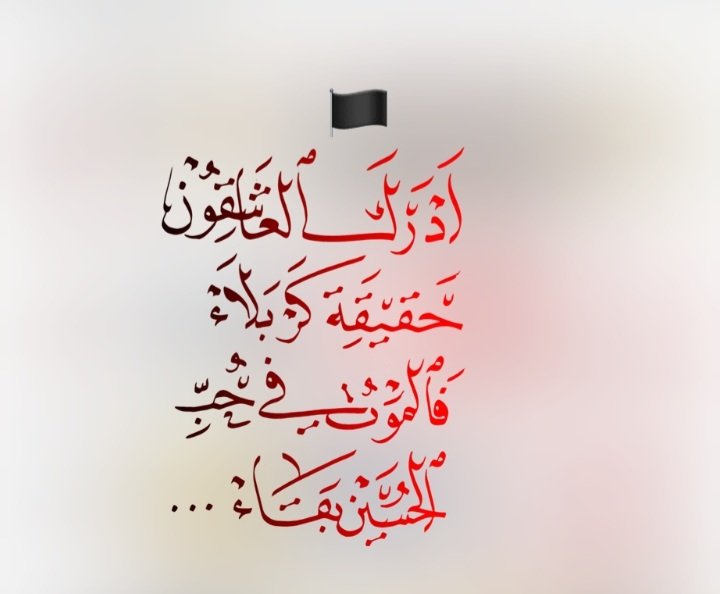 اَدْرَكَ ٱلْعَاشِقُونْ
حَّقيّقَةِ كَرْبَلاَءَ
فَٱلْمَوْتُ في حُّبِّ
ٱلْحُسَّيِنْ بَقَاءْ ...